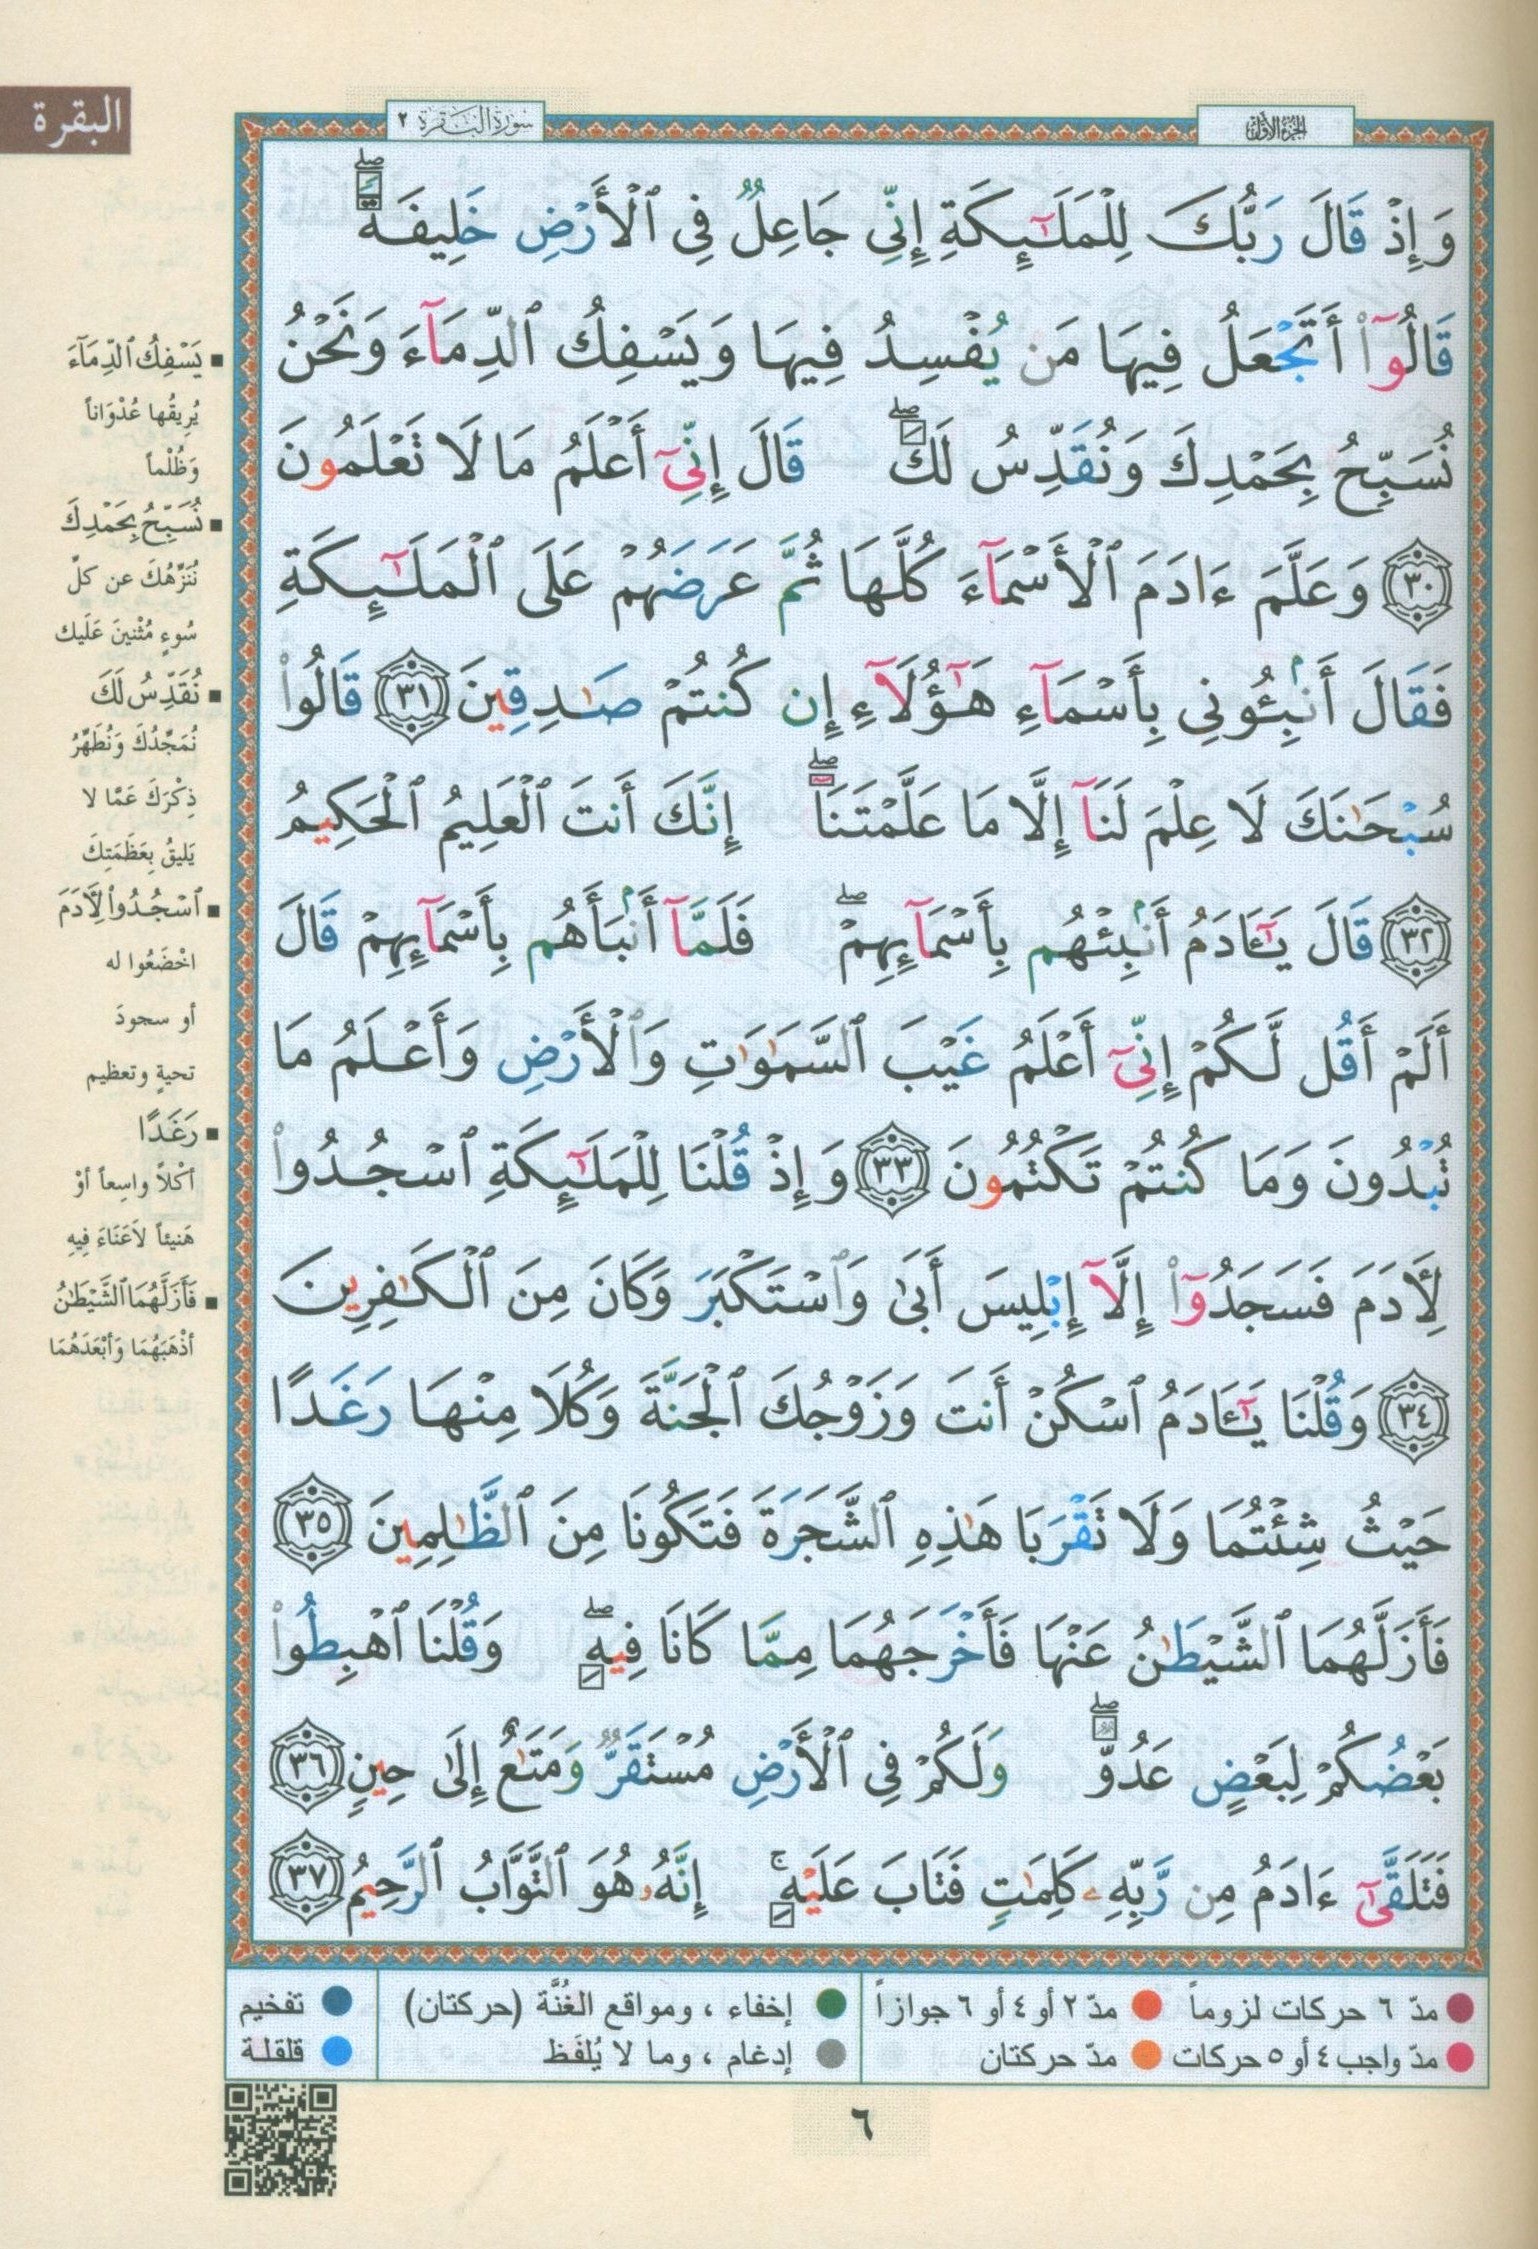 البقرة
الجزء الأول
سورة البقرة ٢
وَإِذْ قَالَ رَبُّكَ لِلْمَلَٰٓئِكَةِ إِنِّى جَاعِلٌ فِى ٱلْأَرْضِ خَلِيفَةً ۖ
قَالُوٓا۟ أَتَجْعَلُ فِيهَا مَن يُفْسِدُ فِيهَا وَيَسْفِكُ ٱلدِّمَآءَ وَنَحْنُ
نُسَبِّحُ بِحَمْدِكَ وَنُقَدِّسُ لَكَ ۖ قَالَ إِنِّىٓ أَعْلَمُ مَا لَا تَعْلَمُونَ
٣٠ وَعَلَّمَ ءَادَمَ ٱلْأَسْمَآءَ كُلَّهَا ثُمَّ عَرَضَهُمْ عَلَى ٱلْمَلَٰٓئِكَةِ
فَقَالَ أَنۢبِـُٔونِى بِأَسْمَآءِ هَٰٓؤُلَآءِ إِن كُنتُمْ صَٰدِقِينَ ٣١ قَالُوا۟
سُبْحَٰنَكَ لَا عِلْمَ لَنَآ إِلَّا مَا عَلَّمْتَنَآ ۖ إِنَّكَ أَنتَ ٱلْعَلِيمُ ٱلْحَكِيمُ
٣٢ قَالَ يَٰٓـَٔادَمُ أَنۢبِئْهُم بِأَسْمَآئِهِمْ ۖ فَلَمَّآ أَنۢبَأَهُم بِأَسْمَآئِهِمْ قَالَ
أَلَمْ أَقُل لَّكُمْ إِنِّىٓ أَعْلَمُ غَيْبَ ٱلسَّمَٰوَٰتِ وَٱلْأَرْضِ وَأَعْلَمُ مَا
تُبْدُونَ وَمَا كُنتُمْ تَكْتُمُونَ ٣٣ وَإِذْ قُلْنَا لِلْمَلَٰٓئِكَةِ ٱسْجُدُوا۟
لِـَٔادَمَ فَسَجَدُوٓا۟ إِلَّآ إِبْلِيسَ أَبَىٰ وَٱسْتَكْبَرَ وَكَانَ مِنَ ٱلْكَٰفِرِينَ
٣٤ وَقُلْنَا يَٰٓـَٔادَمُ ٱسْكُنْ أَنتَ وَزَوْجُكَ ٱلْجَنَّةَ وَكُلَا مِنْهَا رَغَدًا
حَيْثُ شِئْتُمَا وَلَا تَقْرَبَا هَٰذِهِ ٱلشَّجَرَةَ فَتَكُونَا مِنَ ٱلظَّٰلِمِينَ ٣٥
فَأَزَلَّهُمَا ٱلشَّيْطَٰنُ عَنْهَا فَأَخْرَجَهُمَا مِمَّا كَانَا فِيهِ ۖ وَقُلْنَا ٱهْبِطُوا۟
بَعْضُكُمْ لِبَعْضٍ عَدُوٌّ ۖ وَلَكُمْ فِى ٱلْأَرْضِ مُسْتَقَرٌّ وَمَتَٰعٌ إِلَىٰ حِينٍ ٣٦
فَتَلَقَّىٰٓ ءَادَمُ مِن رَّبِّهِۦ كَلِمَٰتٍ فَتَابَ عَلَيْهِ ۚ إِنَّهُۥ هُوَ ٱلتَّوَّابُ ٱلرَّحِيمُ ٣٧
■ يَسْفِكُ ٱلدِّمَآءَ
يُرِيقُها عُدْوَاناً
وَظُلْماً
■ نُسَبِّحُ بِحَمْدِكَ
نُنَزِّهُكَ عن كلِّ
سُوءٍ مُثْنِينَ عَلَيك
■ نُقَدِّسُ لَكَ
نُمَجِّدُكَ وَنُطَهِّرُ
ذِكْرَكَ عَمَّا لا
يَليقُ بِعَظَمَتِكَ
■ ٱسْجُدُوا۟ لِـَٔادَمَ
اخْضَعُوا له
أو سجودَ
تحيةٍ وتعظيم
■ رَغَدًا
أكْلاً واسِعاً أوْ
هَنيئاً لاَعَنَاءَ فِيهِ
■ فَأَزَلَّهُمَا ٱلشَّيْطَٰنُ
أذْهَبَهُمَا وَأبْعَدَهُمَا
مدّ ٦ حركات لزوماً مدّ ٢ أو ٤ أو ٦ جوازاً إخفاء ، ومواقع الغُنَّة (حركتان) تفخيم
مدّ واجب ٤ أو ٥ حركات مدّ حركتان إدغام ، وما لا يُلفَظ قلقلة
٦